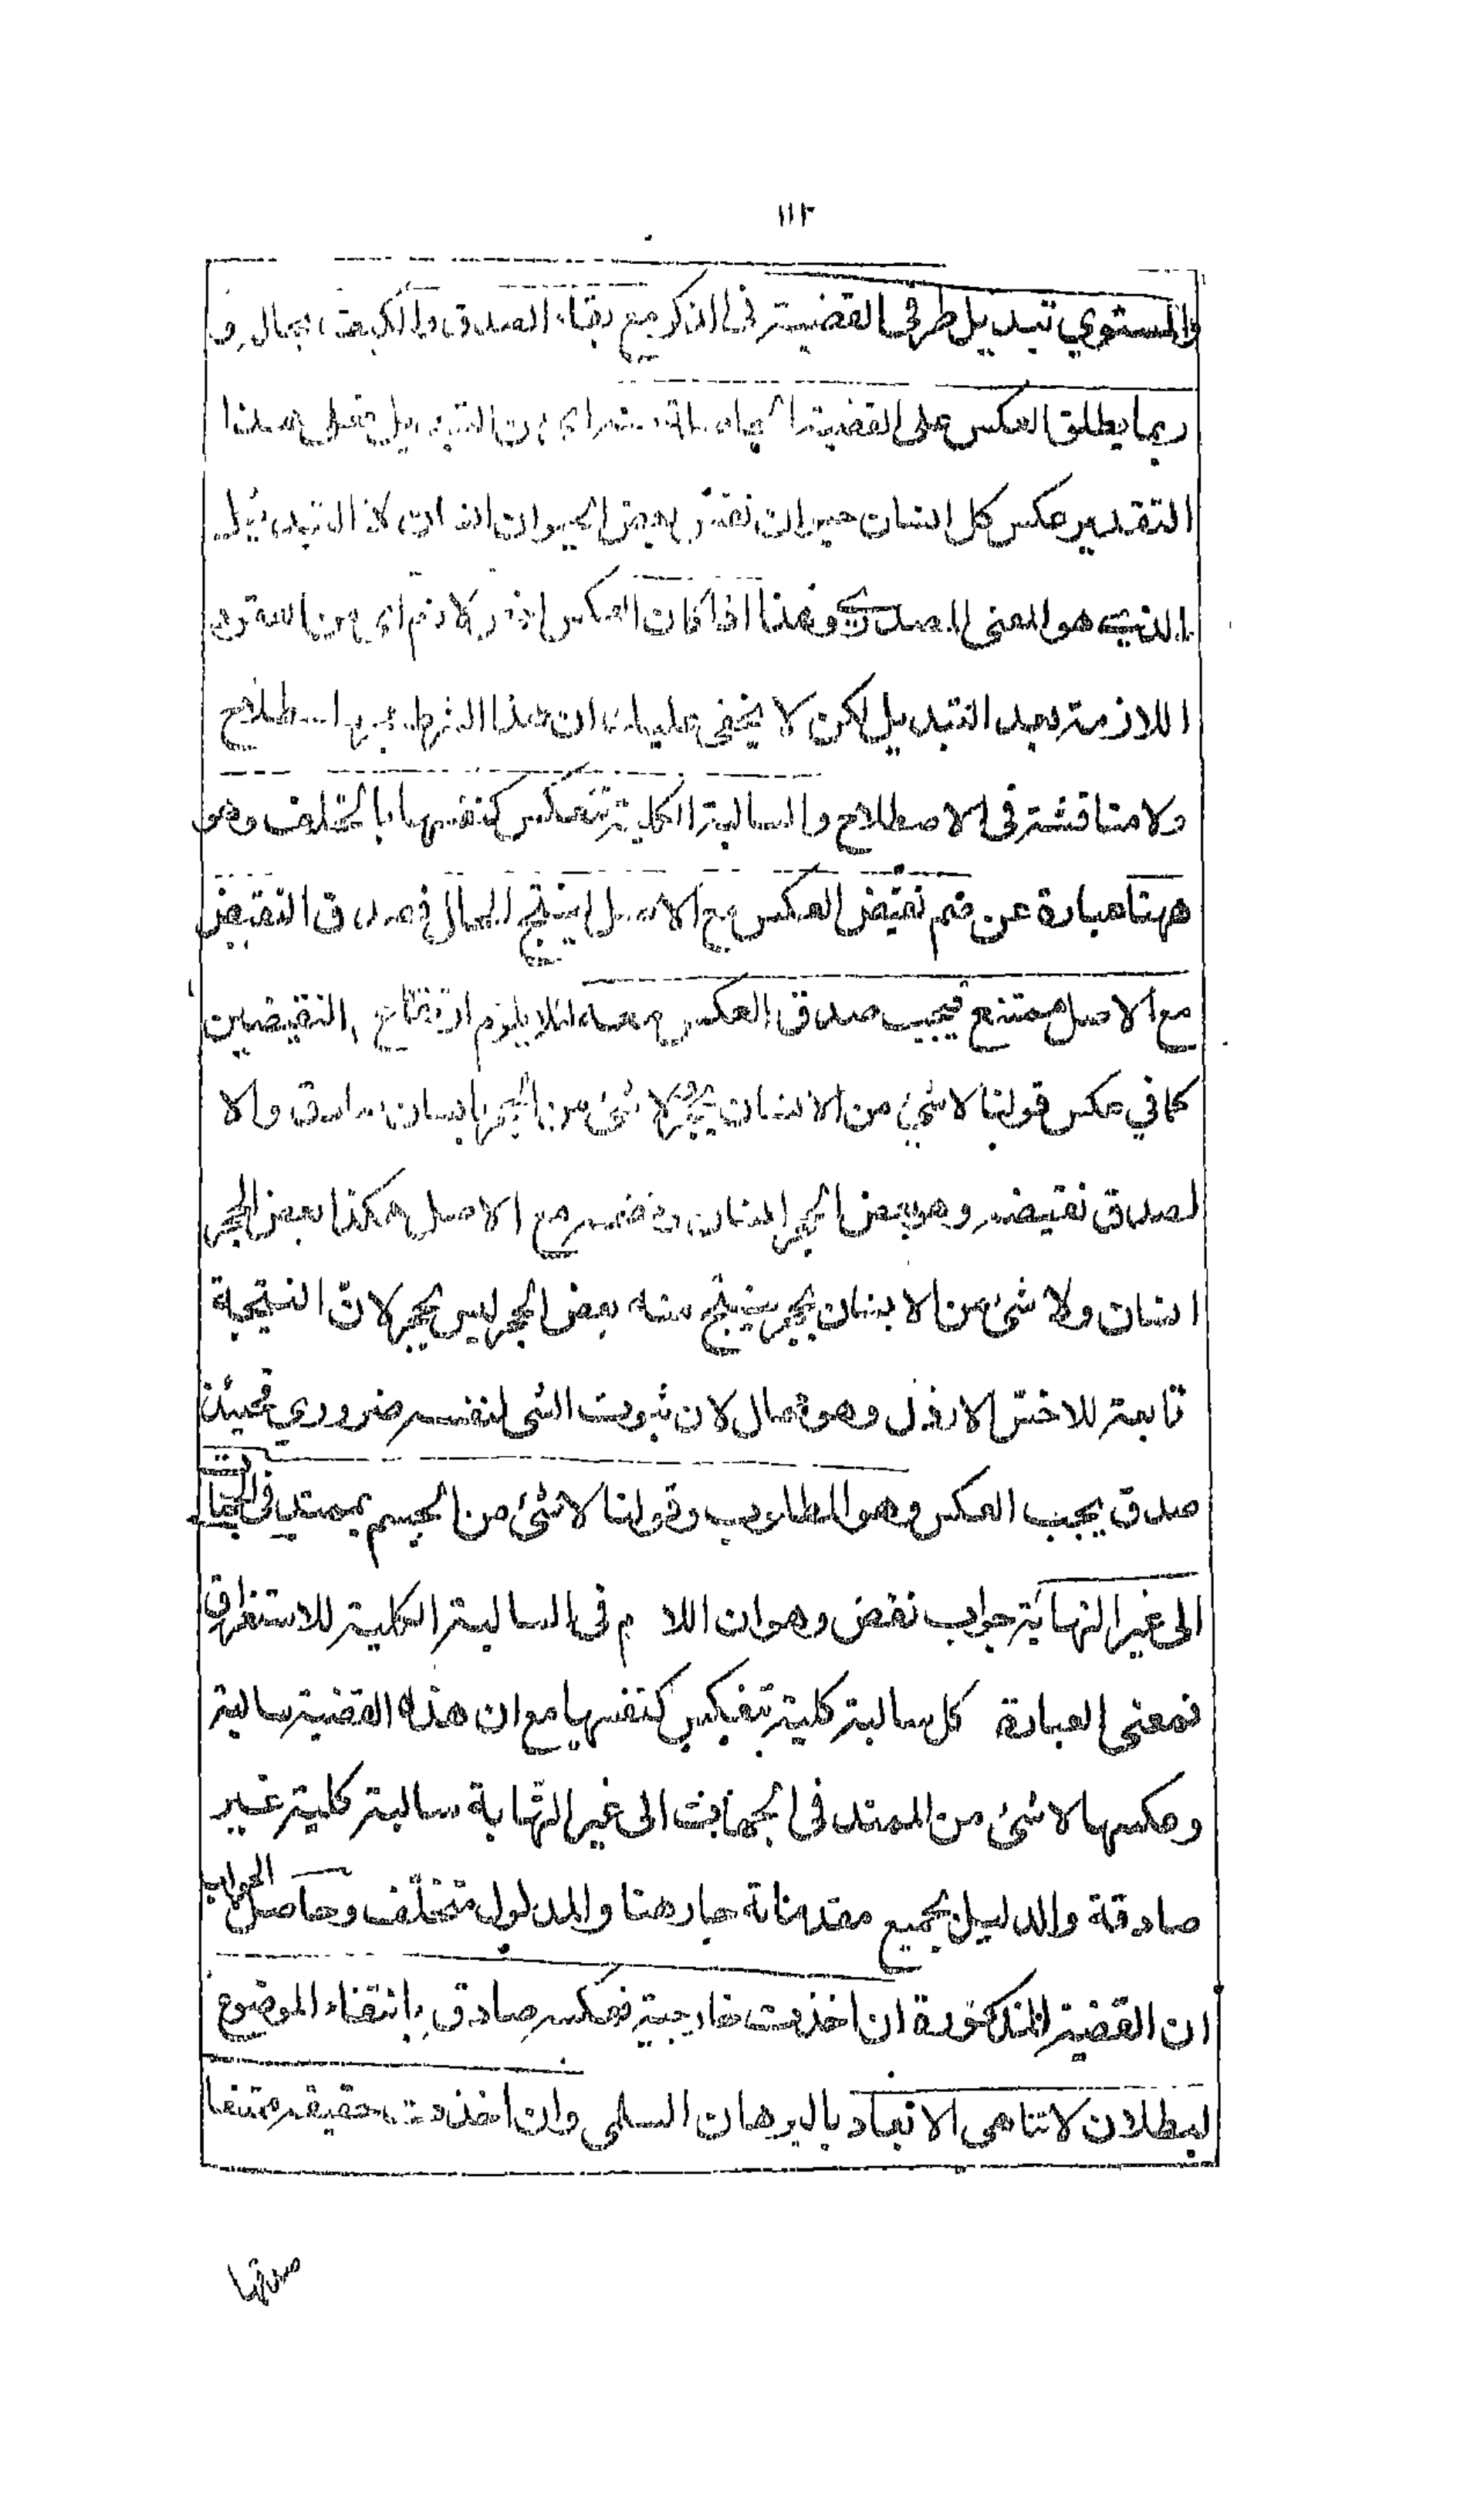 ١١٢
والمستوي تبديل طرفي القضية في الذكر مع بقاء الصدق والكيف بحاله و
ربما يطلق العكس على القضية الحاصلة منه اي من التبديل فعلى هذا
التقدير عكس كل انسان حيوان نفس بعض الحيوان انسان لا التبديل
الذي هو المعنى المصدري وهذا اذا كان العكس اخص لازم اي من
اللازمة بعد التبديل لكن لا يخفى عليك ان هذا الشرط اصطلاح
ولا مناقشة في الاصطلاح والسالبة الكلية تنعكس كنفسها بالخلف وهو
ههنا عبارة عن ضم نقيض العكس مع الاصل لينتج المحال فصدق النقيض
مع الاصل ممتنع فيجب صدق العكس معه لئلا يلزم ارتفاع النقيضين
كما في عكس قولنا لا شئ من الانسان بحجر لا شئ من الحجر بانسان صادق والا
لصدق نقيضه وهو بعض الحجر انسان فنضمه مع الاصل هكذا بعض الحجر
انسان ولا شئ من الانسان بحجر ينتج منه بعض الحجر ليس بحجر لان النتيجة
تابعة للاخس الارذل وهو محال لان ثبوت الشئ لنفسه ضروري فحينئذ
صدق يجب العكس وهو المطلوب وقولنا لا شئ من الجسم بممتد في الجهات
الى غير النهاية جواب نقض وهو ان اللام في السالبة الكلية للاستغراق
فمعنى العبارة كل سالبة كلية تنعكس كنفسها مع ان هذه القضية سالبة
وعكسها لا شئ من الممتد في الجهات الى غير النهاية سالبة كلية غير
صادقة والدليل بجميع مقدماته جار هنا والمدلول متخلف وحاصل الجواب
ان القضية المذكورة ان اخذت خارجية فعكسه صادق بانتفاء الموضوع
لبطلان لا تناهي الابعاد بالبرهان السلمى وان اخذت حقيقة منعنا
صدقها